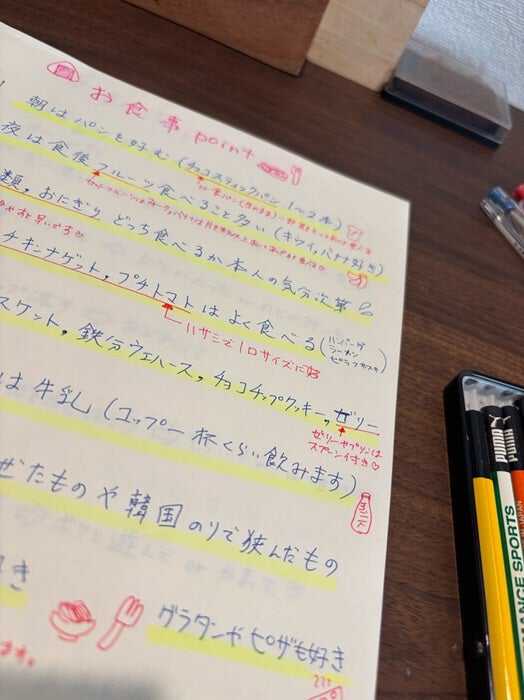 お食事 point
朝はパンを好む(チョコスティックパン1〜2本)
夜は食後フルーツ食べること多い(キウイ,バナナ好き)
類, おにぎり どっち食べるか本人の気分次第
チキンナゲット, プチトマトはよく食べる(ハンバーグ
ラーメン
ハサミで1口サイズに
スケット, 鉄分ウェハース, チョコチップクッキー, ゼリー
ゼリーやプリンは
スプーン付き♡
は牛乳(コップ一杯くらい飲みます)
ぜたものや韓国のりで挟んだもの
き
グラタンやピザも好き
ます。
PUMA
PUMA
MANCE SPORTS